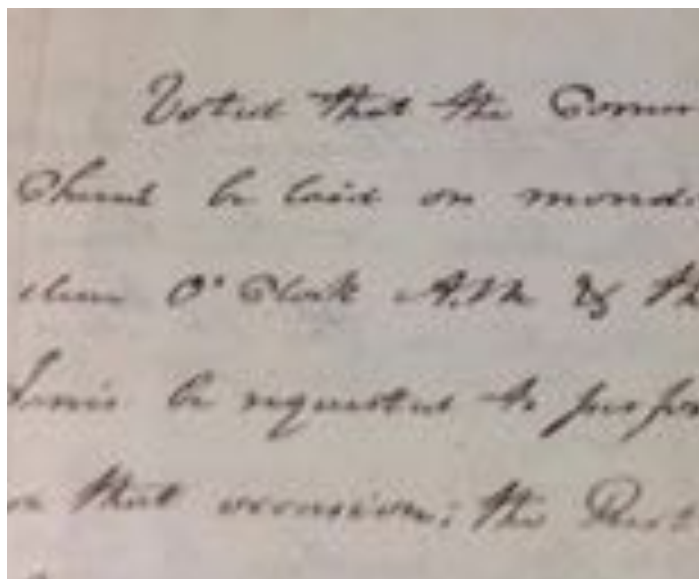 Voted that the Corne
Church be laid on mond
eleven O'Clock A.M & th
be requested to perfo
on that occasion; the Rect